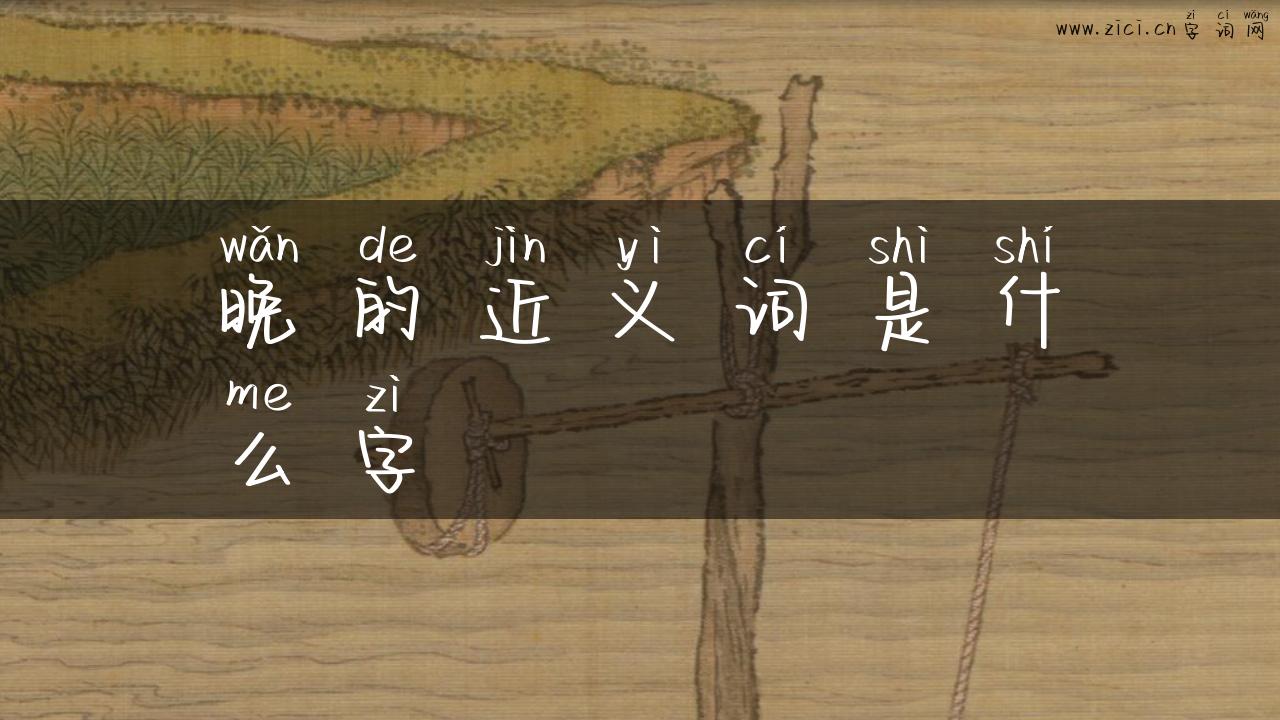 zì cí wǎng
www.zici.cn 字 词 网
wǎn de jìn yì cí shì shí
晚 的 近 义 词 是 什
me zì
么 字